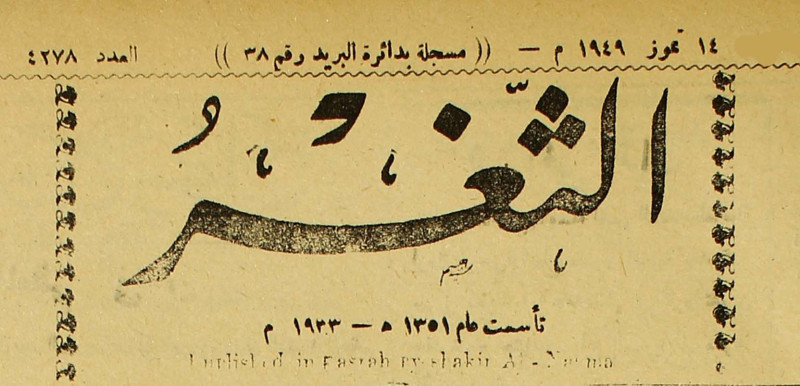 ١٤ تموز ١٩٤٩ م — (( مسجلة بدائرة البريد رقم ٣٨ )) العدد ٤٢٧٨
الثَّغْرُ
تأسست عام ١٣٥١ ه — ١٩٣٣ م
Puplished in Basrah by shakir Al-Neema